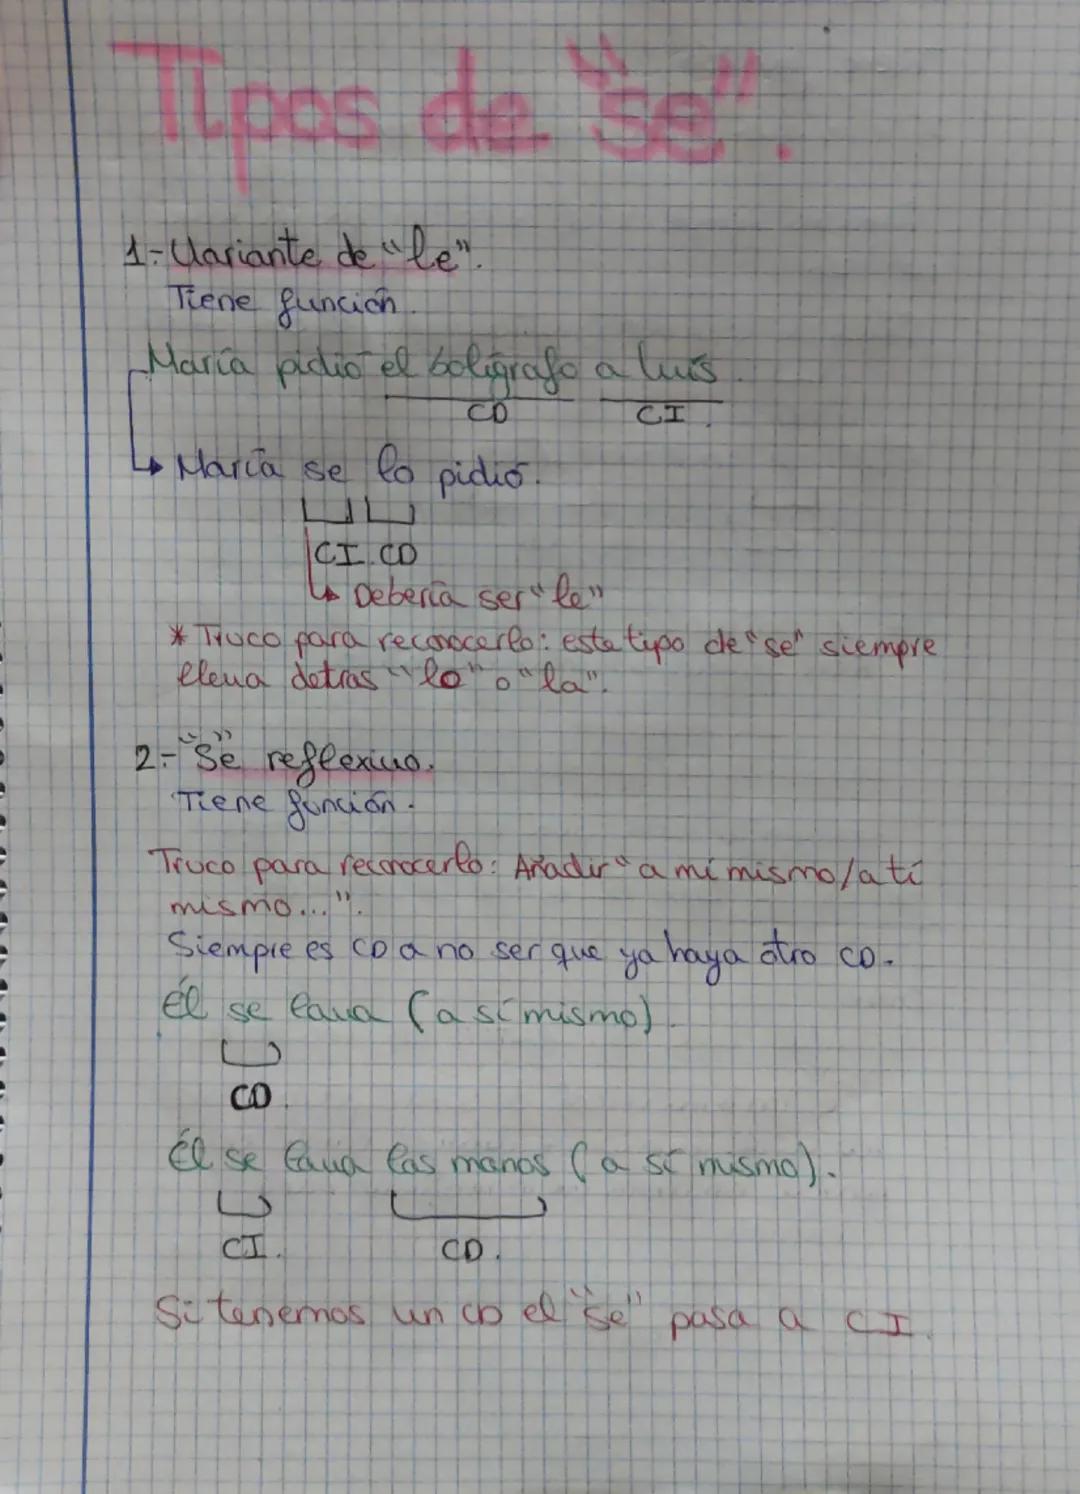 Tipos de "se".
1-Variante de "le".
Tiene función.
María pidió el bolígrafo a Luis.
CD CI.
María se lo pidió.
CI. CD
Debería ser "le"
* Truco para reconocerlo: este tipo de "se" siempre
lleva detras "lo" o "la".
2-"Se" reflexivo.
Tiene función.
Truco para reconocerlo: Añadir "a mí mismo/a ti
mismo...".
Siempre es CD a no ser que ya haya otro CD.
Él se lava (a sí mismo).
CD.
Él se lava las manos (a sí mismo).
CI. CD.
Si tenemos un CD el "se" pasa a CI.